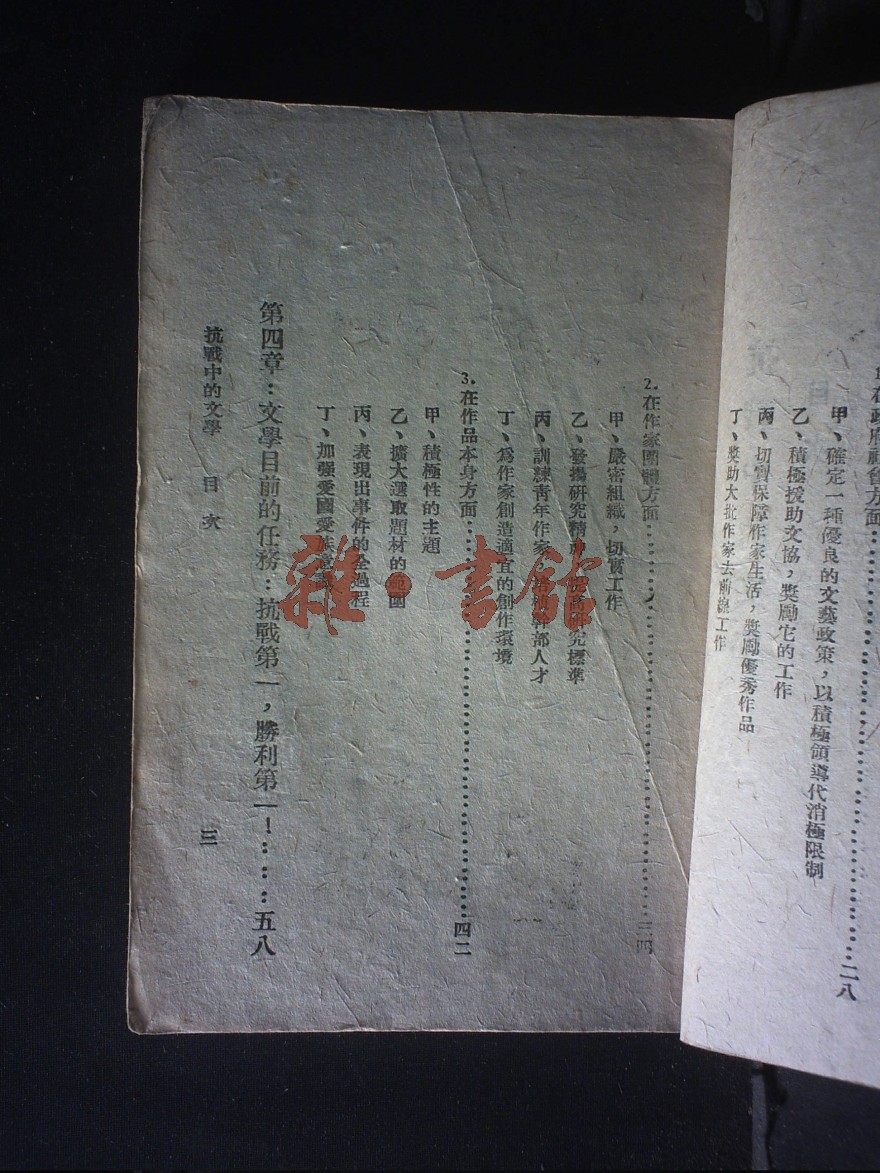 在政府社會方面……二八
甲、確定一種優良的文藝政策，以積極領導代消極限制
乙、積極援助文協，獎勵它的工作
丙、切實保障作家生活，獎勵優秀作品
丁、獎助大批作家去前線工作
2.在作家團體方面……三四
甲、嚴密組織，切實工作
乙、發揚研究精神，提高研究標準
丙、訓練青年作家，培植幹部人才
丁、為作家創造適宜的創作環境
3.在作品本身方面……四二
甲、積極性的主題
乙、擴大選取題材的範圍
丙、表現出事件的全過程
丁、加強愛國愛族意識
第四章：文學目前的任務：抗戰第一，勝利第一！……五八
抗戰中的文學 目次
三
雜·書館